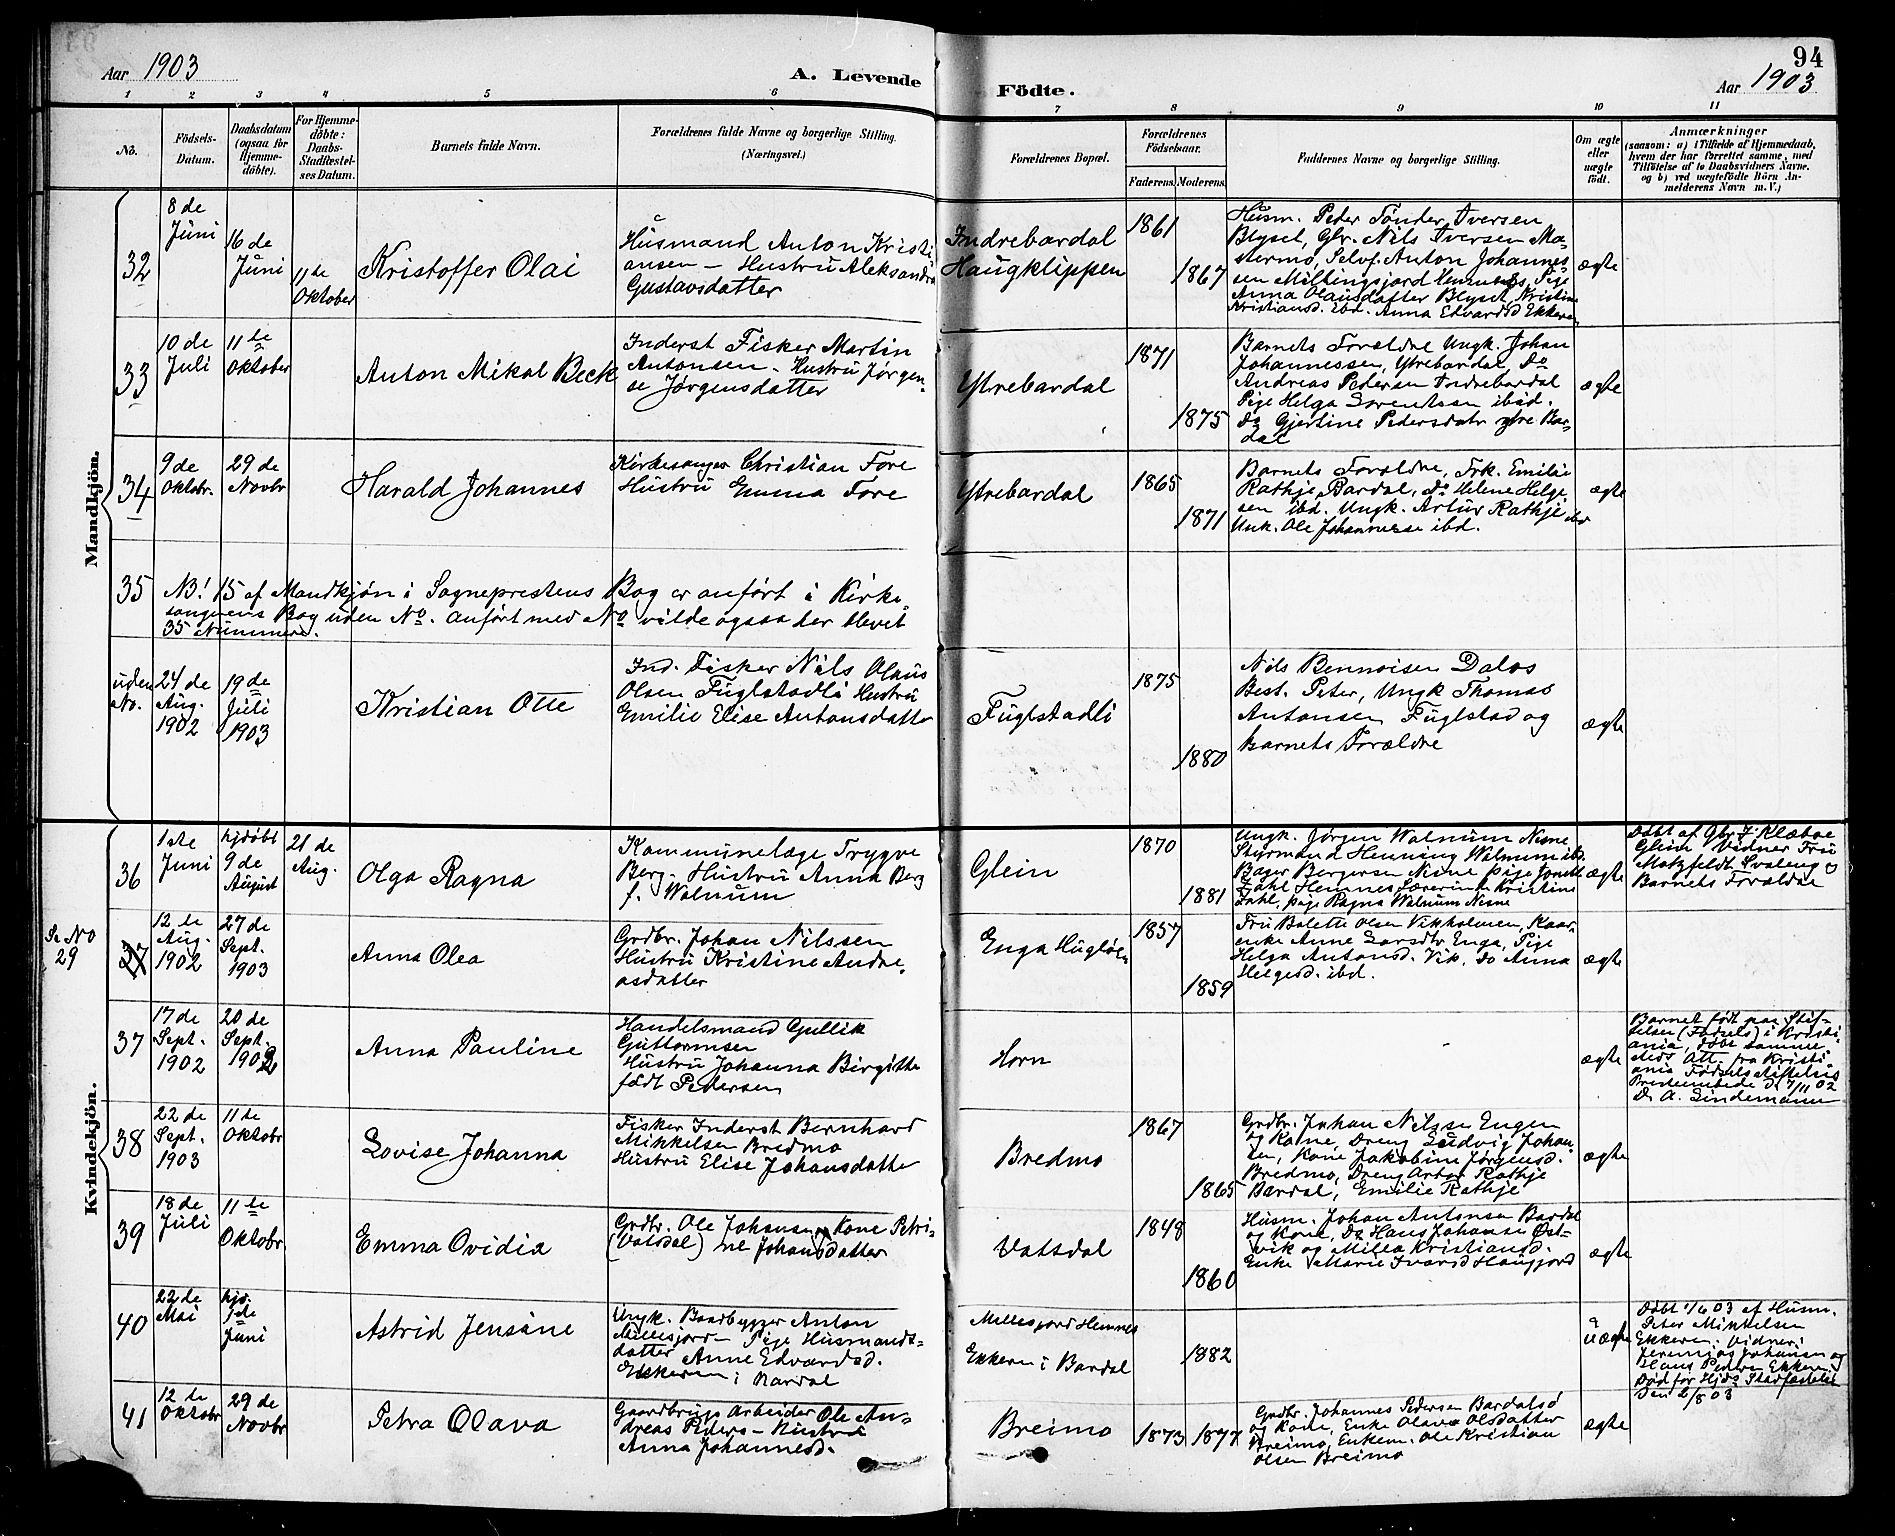 94
Aar 1903
A. Levende
Födte.
Aar 1903
1 2 3 4 5 6 7 8 9 10 11
No.
Födsels-
Datum.
Daabsdatum
(ogsaa for
Hjemme-
döbte).
For Hjemme-
döbte:
Daabs-
Stadfæstel-
ses Datum.
Barnets fulde Navn.
Forældrenes fulde Navne og borgerlige Stilling.
(Næringsvei.)
Forældrenes Bopæl.
Forældrenes
Födselsaar.
Faderens. Moderens.
Faddernes Navne og borgerlige Stilling.
Om ægte
eller
uægte
födt.
Anmærkninger
(saasom: a) i Tilfælde af Hjemmedaab,
hvem der har forrettet samme, med
Tilföielse af to Daabsvidners Navne,
og b) ved uægtefödte Börn An-
melderens Navn m. V.)
Mandkjön.
32
8 de
Juni
16 de
Juni
11 te
Oktober
Kristoffer Olai
Husmand Anton Kristi
ansen – Hustru Aleksandra
Gustavsdatter
Indrebardal
Haugklippen
1861
1867
Husm. Peder Tönder Iversen
Blyset, Gbr. Nils Iversen Ma-
stermo, Selvf. Anton Johannes
sen Millingsjord Hemnes, Pige
Anna Olausdatter Blyset, Kristine
Kristiansd. ibd. Anna Edvardsd Ekkeren
ægte
33
10 de
Juli
11 te
Oktober
Anton Mikal Beck
Inderst Fisker Martin
Antonsen – Hustru Jörgen-
se Jörgensdatter
Ytrebardal
1871
1875
Barnets Forældre Ungk. Johan
Johannessen, Ytrebardal, Do
Andreas Pedersen Indrebardal
Pige Helga Lorentsen ibid.
Do Gjertine Pedersdatr ytre Bar-
dal
ægte
34
9 de
Oktobr.
29 de
Novbr
Harald Johannes
Kirkesanger Christian Fore
Hustru Emma Fore
Ytrebardal
1865
1871
Barnets Forældre, Frk. Emilie
Rathje Bardal, Do Helene Helge
sen ibd. Ungk. Artur Rathje ibd
Unk. Ole Johannesse ibd.
ægte
35
NB! 15 af Mandkjön i Sogneprestens Bog er anfört i Kirke
sangerens Bog uden No. anfört med No vilde ogsaa her blevet
35 Nummere.
uden
No.
24 de
Aug.
1902
19 de
Juli
1903
Kristian Otte
Ind. Fisker Nils Olaus
Olsen Fuglstadli Hustru
Emilie Elise Antonsdatter
Fuglstadli
1875
1880
Nils Bennoisen Dalos
Best. Peter, Ungk Thomas
Antonsen Fuglstad og
Barnets Forældre
ægte
Kvindekjön.
36
1ste
Juni
hjdöbt
9 de
August
21 de
Aug.
Olga Ragna
Kommunelæge Trygve
Berg. Hustru Anna Berg
f. Walnum
Glein
1870
1881
Ungk. Jörgen Walnum Nesne
Styrmand Henning Walnum ibd.
Bager Bergersen Nesne Pige
Dahl Hemnes Kristine
Dahl, pige Ragna Walnum Nesne
ægte
Döbt af Gbr J Klæboe
Glein Vidner Fru
Motzfeldt Svaleng og
Barnets Forældre
Se No
29
37
12 te
Aug.
1902
27 de
Sept.
1903
Anna Olea
Grdbr. Johan Nilssen
Hustru Kristine Andre-
asdatter
Enga Huglöen
1857
1859
Fru Bolette Olsen Vikholmen, Kaar-
enke Anne Larsdtr Enga, Pige
Helga Antonsd. Vik, Do Anna
Helgesd. ibd.
ægte
37
17 de
Sept.
1902
20 de
Sept.
1902
Anna Pauline
Handelsmand Gullik
Guttormsen
Hustru Johanna Birgitte
födt Pedersen
Horn
ægte
Barnet födt paa Stif-
telsen (Födsels) i Kristi-
ania, döbt samme
sted. Att. fra Kristi
ania Födselsstiftelses
Presteembede d 7/11 02
Dr A. Lindemann
38
22 de
Sept.
1903
11 te
Oktobr
Lovise Johanna
Fisker Inderst Bernhard
Mikkelsen Bredmo
Hustru Elise Johansdatter
Bredmo
1867
1865
Grdbr. Johan Nilsen Engen
og Kone, Dreng Ludvig Johan
sen, Kone Jakobine Jörgensd.
Bredmo, Dreng Artur Rathje
Bardal, Emilie Rathje
ægte
39
18 de
Juli
11 te
Oktobr
Emma Ovidia
Grdbr. Ole Johansen, Kone Petri-
(Vatsdal) ne Johansdatter
Vatsdal
1848
1860
Husm. Johan Antonsen Bardal
og Kone, Do Hans Johansen Öst-
vik og Milla Kristiansd.
Enke Marie Ivarsd Haugjord
ægte
40
22 de
Mai
hjd.
1 de
Juni
Astrid Jensine
Ungk. Baadbygger Anton
Millesjord – Pige Husmands-
datter Anne Edvardsd.
Ekkeren i Bardal
Millesjord Hemnes
Ekkeren i Bardal
1882
uægte
Döbt 1/6 03 af Husm.
Peter Mikkelsen
Ekkeren. Vidner:
Jeremias Johansen og
Hans Peder Ekkeren
Död för Hjds Stadfæstelse
den 2/8 03
41
12 te
Oktobr
29 de
Novbr
Petra Olava
Gaardbrugs Arbeider Ole An-
dreas Peders – Hustru
Anna Johannesd.
Breimo
1873
1877
Grdbr. Johannes Pedersen Bardalsö
og Kone, Enke Olava Olsdatter
Breimo, Enkem. Ole Kristian
Olsen Breimo
ægte